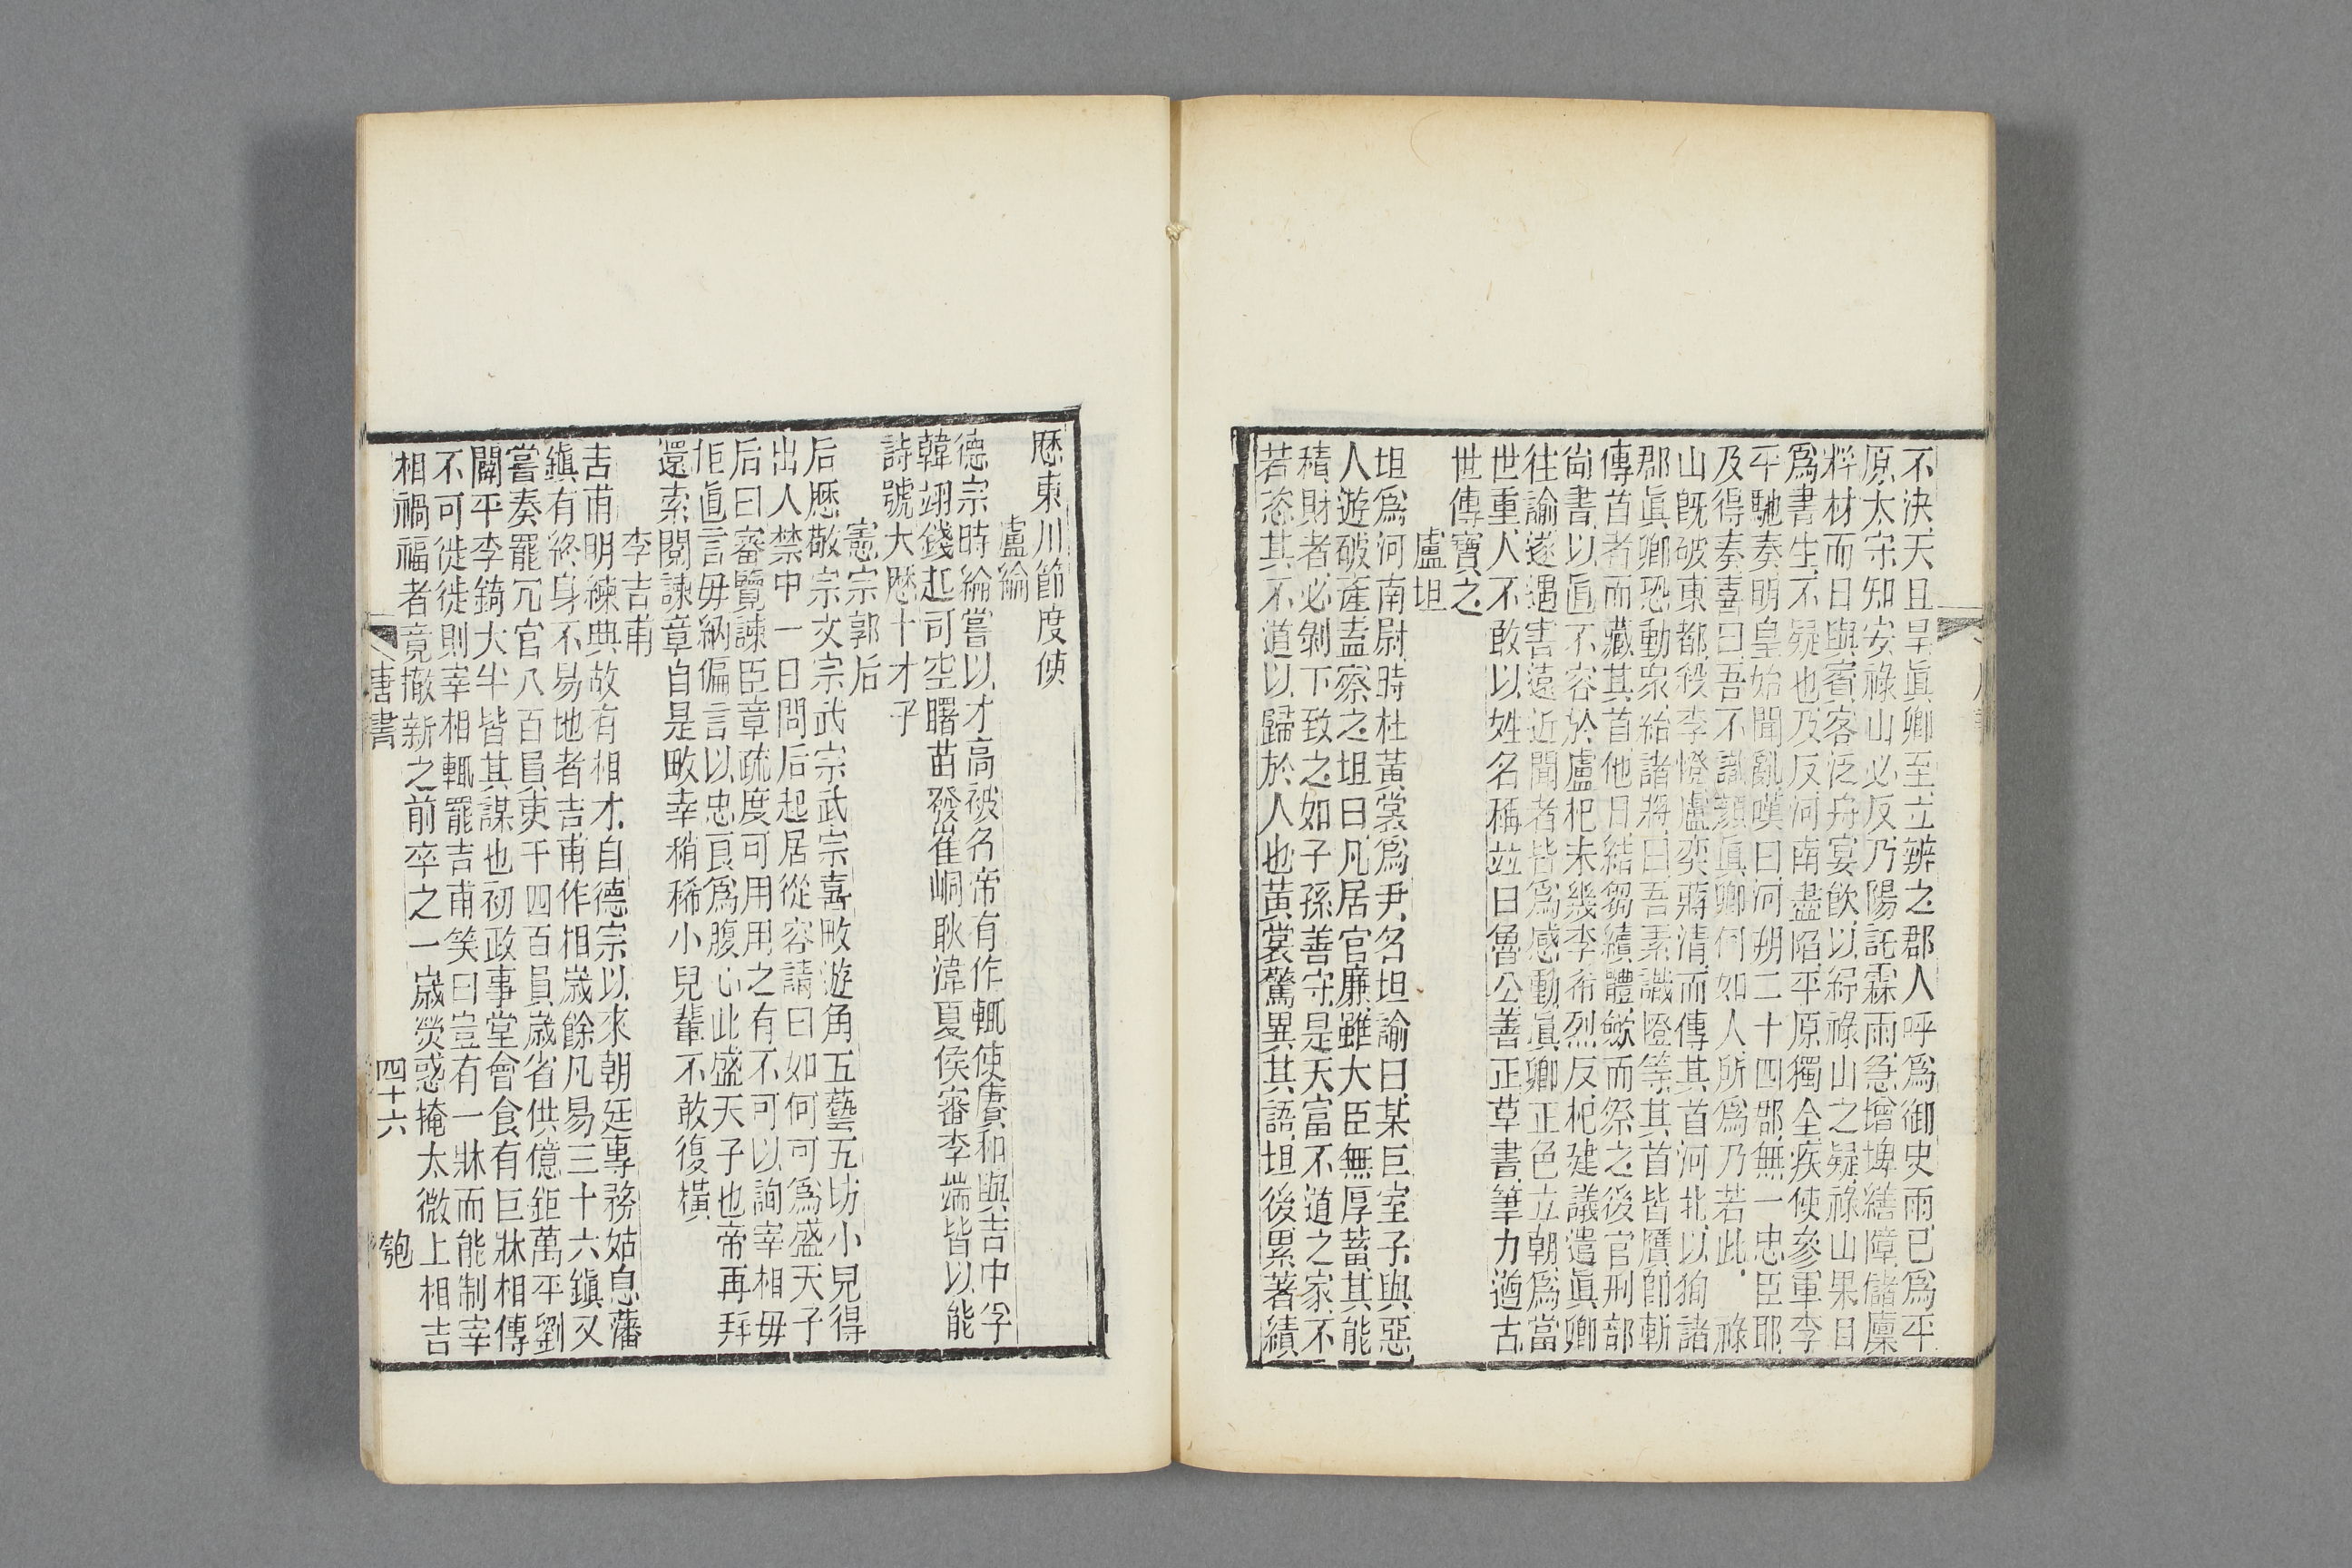 不決天且旱眞卿至立辨之郡人呼爲御史雨已爲平
原太守知安祿山必反乃陽託霖雨急增埤繕隍儲廩
料材而日與賓客泛舟宴飲以紓祿山之疑祿山果目
爲書生不疑也及反河南盡陷平原獨全疾使參軍李
平馳奏明皇始聞亂嘆曰河朔二十四郡無一忠臣耶
及得奏喜曰吾不識顏眞卿何如人所爲乃若此祿
山旣破東都殺李憕盧奕蔣清而傳其首河北以狥諸
郡眞卿恐動衆紿諸將曰吾素識憕等其首皆贋卽斬
傳首者而藏其首他日結芻續體歛而祭之後官刑部
尙書以直不容於盧杞未幾李希烈反杞建議遣眞卿
往諭遂遇害遠近聞者皆爲感動眞卿正色立朝爲當
世重人不敢以姓名稱竝曰魯公善正草書筆力遒古
世傳寶之
盧坦
坦爲河南尉時杜黃裳爲尹名坦諭曰某巨室子與惡
人遊破產盍察之坦曰凡居官廉雖大臣無厚蓄其能
積財者必剝下致之如子孫善守是天富不道之家不
若恣其不道以歸於人也黃裳驚異其語坦後累著績
歷東川節度使
盧綸
德宗時綸嘗以才高被名帝有作輒使賡和與吉中孚
韓翊錢起司空曙苗發崔峒耿湋夏侯審李端皆以能
詩號大歷十才子
憲宗郭后
后歷敬宗文宗武宗武宗喜畋遊角五藝五坊小兒得
出人禁中一日問后起居從容請曰如何可爲盛天子
后曰審覽諫臣章疏度可用用之有不可以詢宰相毋
拒直言毋納偏言以忠良爲腹心此盛天子也帝再拜
還索閱諫章自是畋幸稍稀小兒輩不敢復橫
李吉甫
吉甫明練典故有相才自德宗以來朝廷專務姑息藩
鎭有終身不易地者吉甫作相歲餘凡易三十六鎭又
嘗奏罷冗官八百員吏千四百員歲省供億鉅萬平劉
闢平李錡大半皆其謀也初政事堂會食有巨牀相傳
不可徙徙則宰相輒罷吉甫笑曰豈有一牀而能制宰
相禍福者竟撤新之前卒之一歲熒惑掩太微上相吉
唐書 四十六 匏